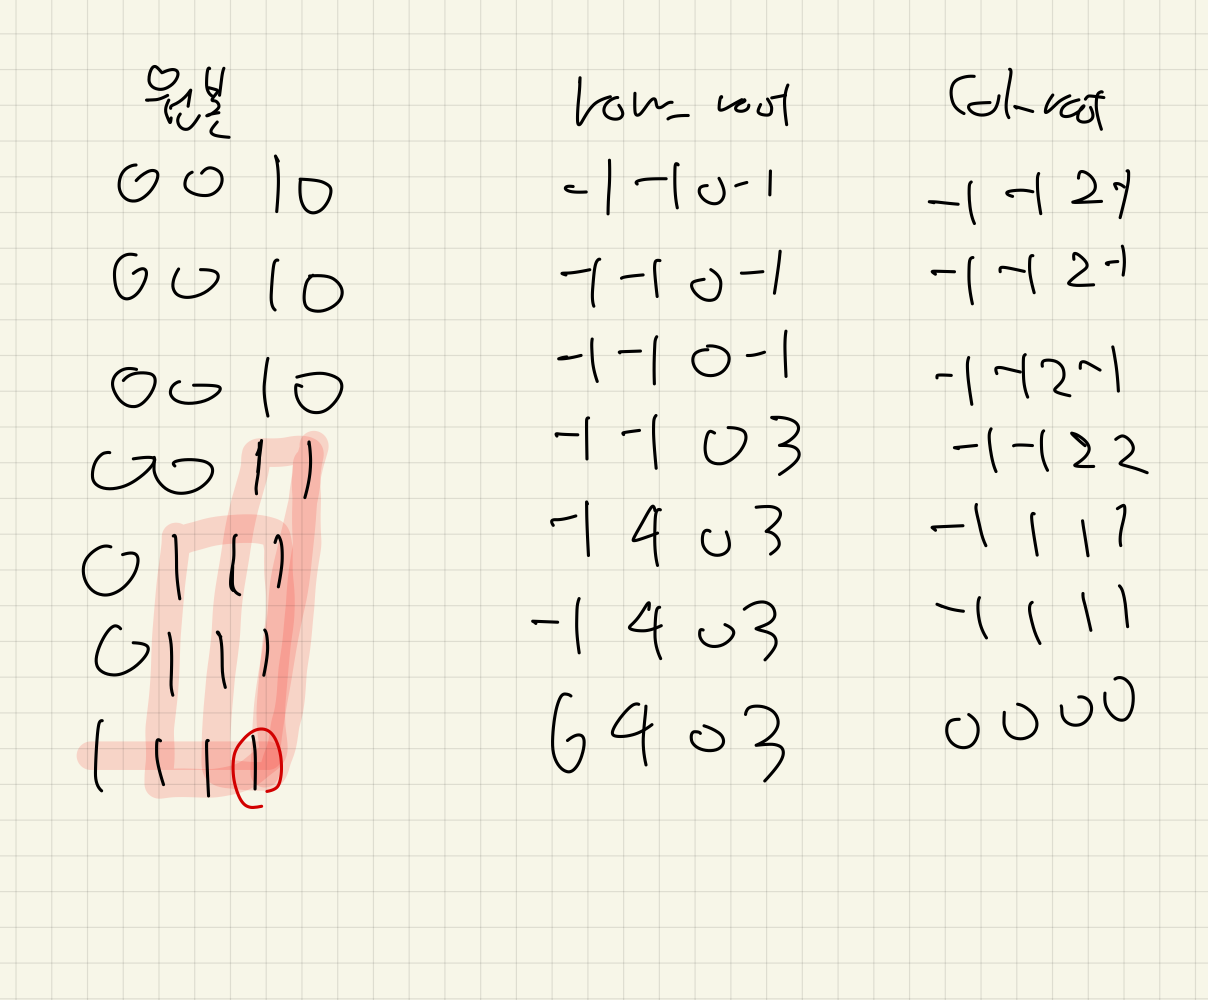 원본 row_root col_root
0 0 1 0 -1 -1 0 -1 -1 -1 2 -1
0 0 1 0 -1 -1 0 -1 -1 -1 2 -1
0 0 1 0 -1 -1 0 -1 -1 -1 2 -1
0 0 1 1 -1 -1 0 3 -1 -1 2 2
0 1 1 1 -1 4 0 3 -1 1 1 1
0 1 1 1 -1 4 0 3 -1 1 1 1
1 1 1 1 6 4 0 3 0 0 0 0